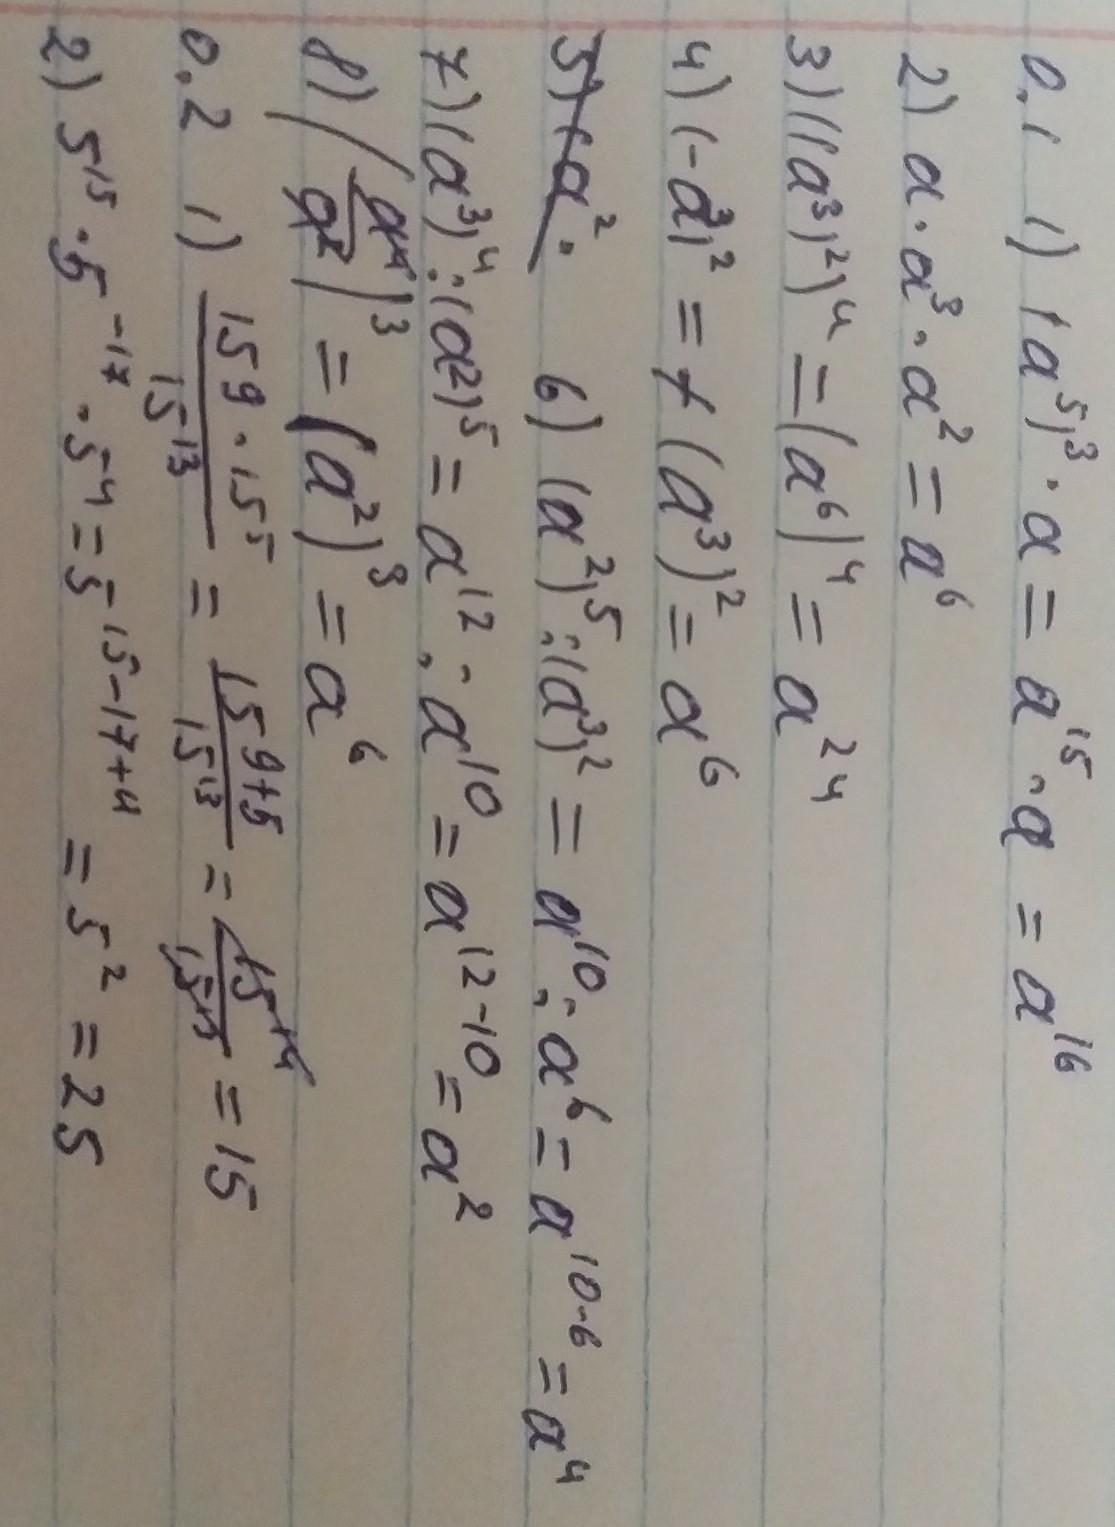 0.1 1) (a⁵)³ · a = a¹⁵ · a = a¹⁶
2) a · a³ · a² = a⁶
3) ((a³)²)⁴ = (a⁶)⁴ = a²⁴
4) (-a³)² = +(a³)² = a⁶
5) (a² · 6) (a²)⁵ : (a³)² = a¹⁰ : a⁶ = a¹⁰⁻⁶ = a⁴
7) (a³)⁴ : (a²)⁵ = a¹² : a¹⁰ = a¹²⁻¹⁰ = a²
8) (a⁴/a²)³ = (a²)³ = a⁶
0.2 1) 15⁹ · 15⁵ / 15¹³ = 15⁹⁺⁵ / 15¹³ = 15¹⁴ / 15¹³ = 15
2) 5¹⁵ · 5⁻¹⁷ · 5⁴ = 5¹⁵⁻¹⁷⁺⁴ = 5² = 25